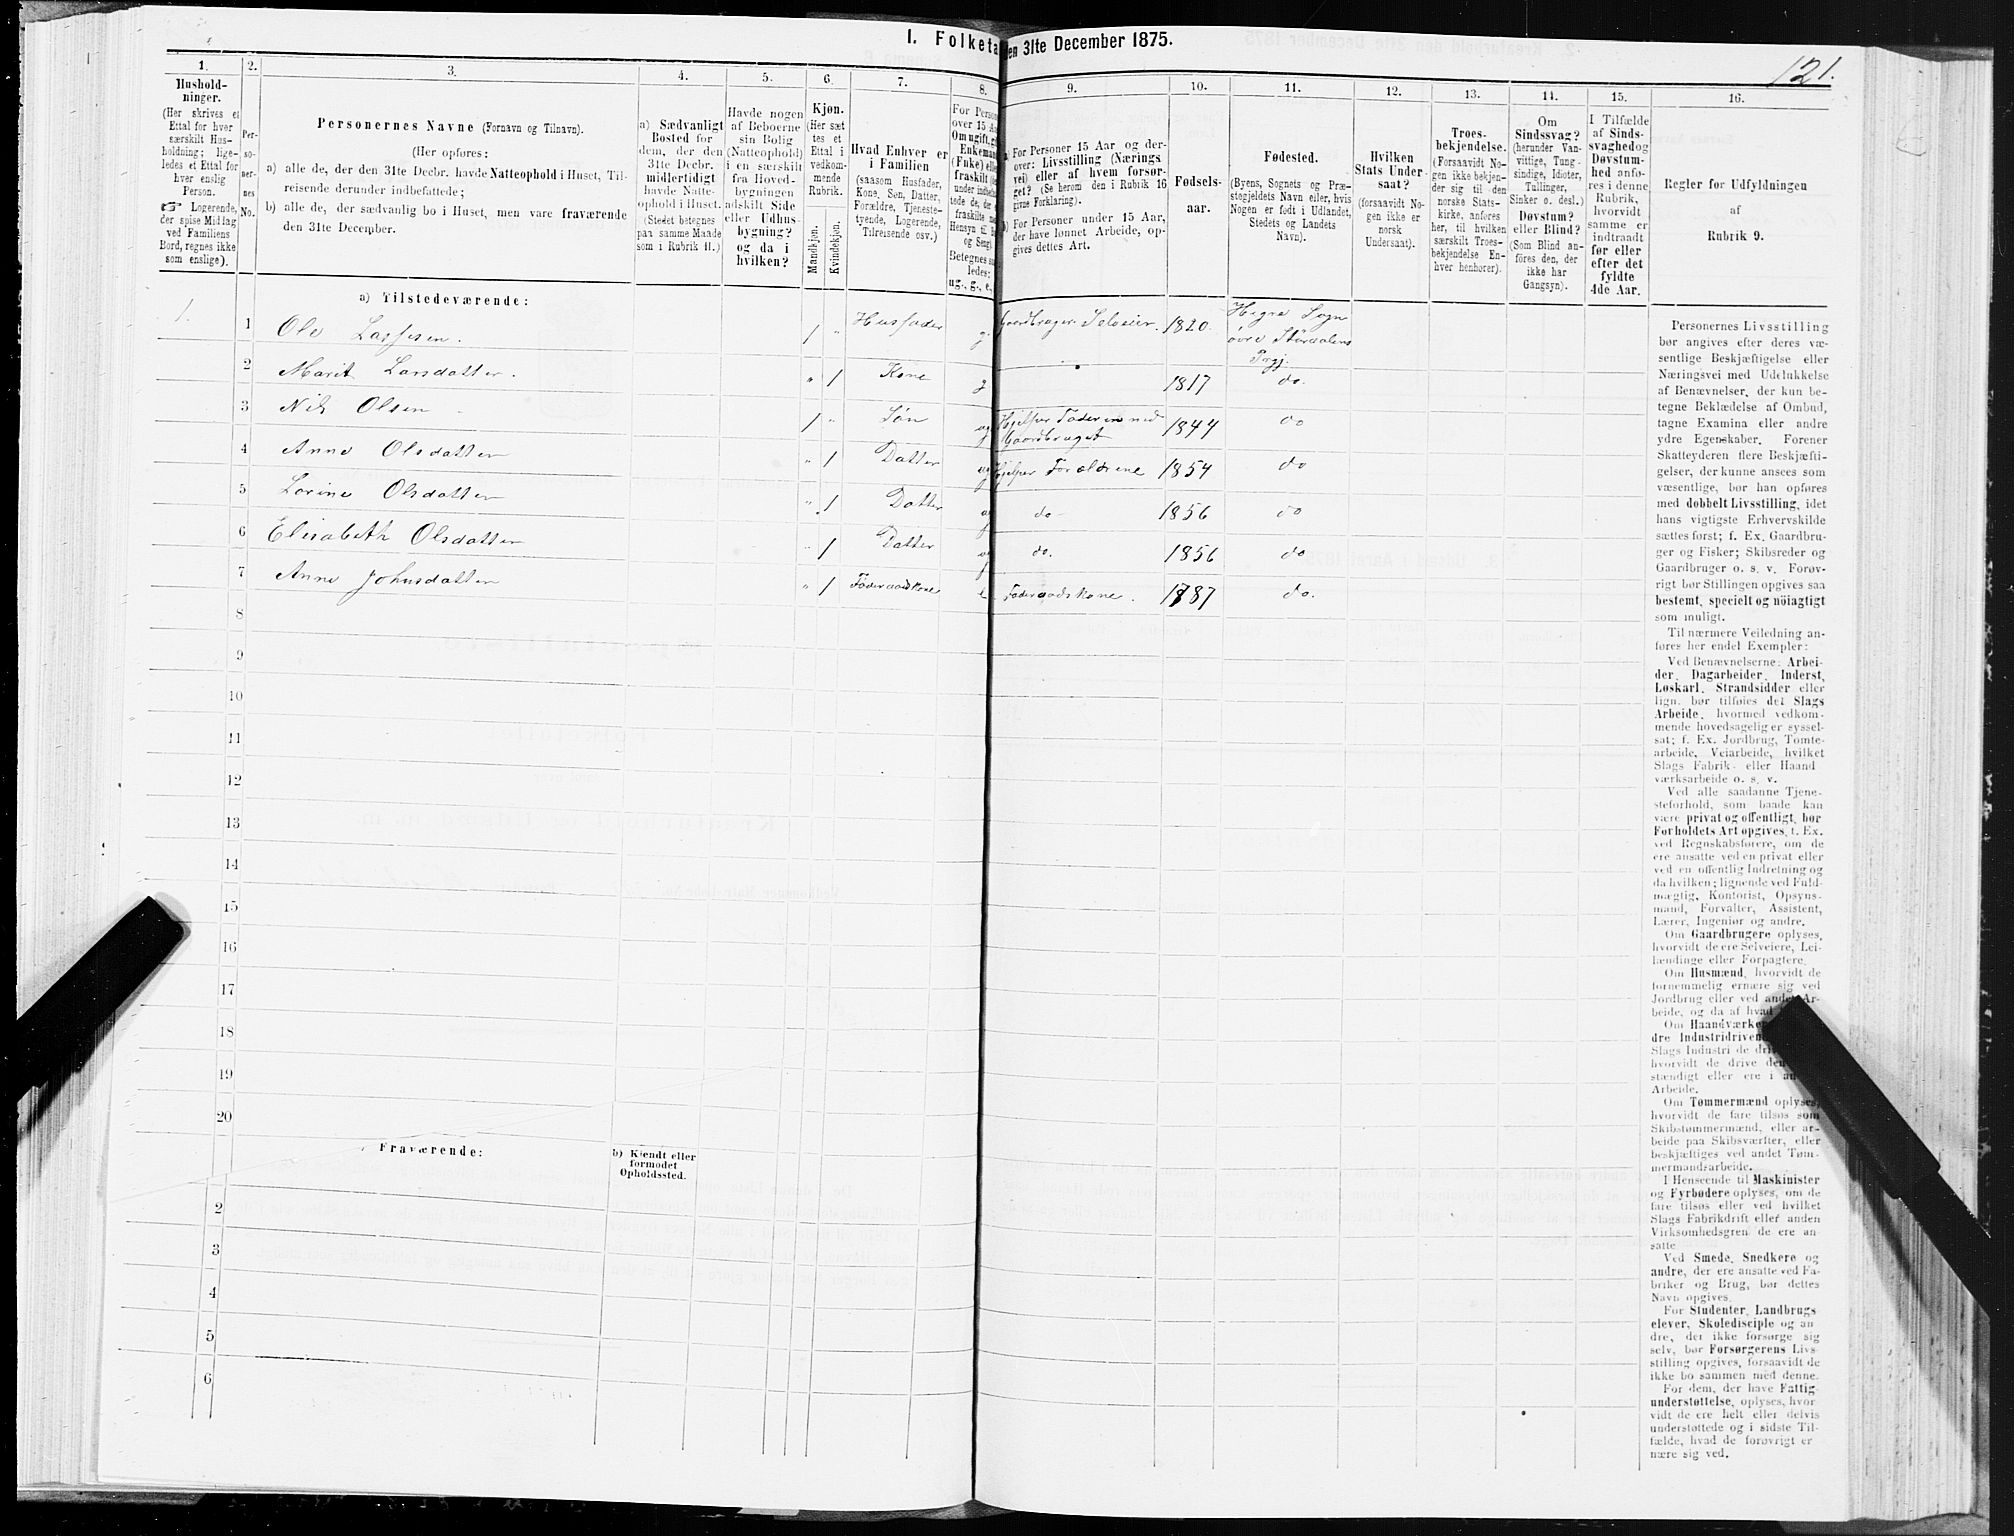 I. Folketa
en 31te December 1875.
121.
1.
2.
3.
4.
5.
6.
7.
8.
9.
10.
11.
12.
13.
14.
15.
16.
Hushold-
ninger.
(Her skrives et
Ettal for hver
særskilt Hus-
holdning; lige-
ledes et Ettal for
hver enslig
Person.
☞ Logerende,
der spise Middag
ved Familiens
Bord, regnes ikke
som enslige).
Per-
so-
ner-
nes
No.
Personernes Navne (Fornavn og Tilnavn).
(Her opføres:
a) alle de, der den 31te Decbr. havde Natteophold i Huset, Til-
reisende derunder indbefattede;
b) alle de, der sædvanlig bo i Huset, men vare fraværende
den 31te December.
a) Sædvanligt
Bosted for
dem, der den
31te Decbr.
midlertidigt
havde Natte-
ophold i Huset.
(Stedet betegnes
paa samme Maade
som i Rubrik 11.)
Havde nogen
af Beboerne
sin Bolig
(Natteophold)
i en særskilt
fra Hoved-
bygningen
adskilt Side
eller Udhus-
bygning?
og da i
hvilken?
Kjøn.
(Her sæt
tes et
Ettal i
vedkom-
mende
Rubrik.
Mandkjøn.
Kvindekjøn.
Hvad Enhver er
i Familien
(saasom Husfader,
Kone, Søn, Datter,
Forældre, Tjeneste-
tyende, Logerende,
Tilreisende osv.)
For Perso
over 15 Aa
Om ugift, gi
Enkeman
(Enke) elle
fraskilt (de
under indbe
tede de, der
fraskilte me
Hensyn til B
og Seng).
Betegnes saa
ledes:
ug., g., e.,
a) For Personer 15 Aar og der-
over: Livsstilling (Nærings
vei) eller af hvem forsør-
get? (Se herom den i Rubrik 16
givne Forklaring).
b) For Personer under 15 Aar,
der have lønnet Arbeide, op-
gives dettes Art.
Fødsels-
aar.
Fødested.
(Byens, Sognets og Præ-
stegjeldets Navn eller, hvis
Nogen er født i Udlandet,
Stedets og Landets
Navn).
Hvilken
Stats Under-
saat?
(forsaavidt No-
gen ikke er
norsk
Undersaat).
Troes-
bekjendelse.
(Forsaavidt No-
gen ikke bekjen-
der sig til den
norske Stats-
kirke, anføres
her, til hvilken
særskilt Troes-
bekjendelse En-
hver henhører).
Om
Sindssvag?
(herunder Van-
vittige, Tung-
sindige, Idioter,
Tullinger,
Sinker o. desl.)
Døvstum?
eller Blind?
(Som Blind an-
føres den, der
ikke har
Gangsyn).
I Tilfælde
af Sinds-
svaghed og
Døvstum-
hed anfø-
res i denne
Rubrik,
hvorvidt
samme er
indtraadt
før eller
efter det
fyldte
4de Aar.
Regler for Udfyldningen
af
Rubrik 9.
a) Tilstedeværende:
1. 1 Ole Larssen. 1 " Husfader g Gaardbruger Selveier. 1820. Hegre Sogn
øvre Størdalens
Prgj.
2 Marit Larsdatter. " 1 Kone g 1817 do.
3 Nils Olsen 1 " Søn ug Hjelper Faderen med
Gaardbruget 1844 do
4 Anne Olsdatter " 1 Datter ug Hjelper Forældrene 1854 do
5 Lorine Olsdatter " 1 Datter ug do 1856 do
6 Elisabeth Olsdatter " 1 Datter ug do. 1856 do
7 Anne Johnsdatter " 1 Føderaadskone e Føderaadskone. 1787 do.
8
9
10
11
12
13
14
15
16
17
18
19
20
Fraværende:
b) Kjendt eller
formodet
Opholdssted.
2
3
4
5
6
Personernes Livsstilling
bør angives efter deres væ-
sentlige Beskjæftigelse eller
Næringsvei med Udelukkelse
af Benævnelser, der kun be-
tegne Beklædelse af Ombud,
tagne Examina eller andre
ydre Egenskaber. Forener
Skatteyderen flere Beskjæfti-
gelser, der kunne ansees som
væsentlige, bør han opføres
med dobbelt Livsstilling, idet
hans vigtigste Erhvervskilde
sættes først; f. Ex. Gaardbru-
ger og Fisker; Skibsreder og
Gaardbruger o. s. v. Forøv-
rigt bør Stillingen opgives saa
bestemt, specielt og nøiagtigt
som muligt.
Til nærmere Veiledning an-
føres her endel Exempler:
Ved Benævnelserne: Arbei-
der, Dagarbeider, Inderst,
Løskarl, Strandsidder eller
lign. bør tilføies det Slags
Arbeide, hvormed vedkom-
mende hovedsagelig er syssel-
sat; f. Ex. Jordbrug, Tomte-
arbeide, Veiarbeide, hvilket
Slags Fabrik- eller Haand
værksarbeide o. s. v.
Ved alle saadanne Tjene-
steforhold, som baade kan
være privat og offentligt, bør
Forholdets Art opgives, t. Ex.
ved Regnskabsførere, om de
ere ansatte ved en privat eller
ved en offentlig Indretning og
da hvilken; lignende ved Fuld-
mægtig, Kontorist, Opsyns-
mand, Forvalter, Assistent,
Lærer, Ingeniør og andre.
Om Gaardbrugere oplyses,
hvorvidt de ere Selveiere, Lei-
lændinge eller Forpagtere.
Om Husmænd, hvorvidt de
fornemmelig ernære sig ved
Jordbrug eller ved andet Ar-
beide, og da af hvad
Om Haandværke
dre Industridrivend
Slags Industri de driv
hvorvidt de drive den
stændigt eller ere i an
Arbeide.
Om Tømmermænd oplyses,
hvorvidt de fare tilsøs som
Skibstømmermænd, eller ar-
beide paa Skibsværfter, eller
beskjæftiges ved andet Tøm-
mermandsarbeide.
I Henseende til Maskinister
og Fyrbødere oplyses, om de
fare tilsøs eller ved hvilket
Slags Fabrikdrift eller anden
Virksomhedsgren de ere an-
satte
Ved Smede, Snedkere og
andre, der ere ansatte ved Fa-
briker og Brug, bør dettes
Navn opgives.
For Studenter, Landbrugs
elever, Skoledisciple og an
dre, der ikke forsørge sig
selv, bør Forsørgerens Livs-
stilling opgives, forsaavidt de
ikke bo sammen med denne.
For dem, der have Fattig-
understøttelse, oplyses, hvor
vidt de ere helt eller delvis
understøttede og i sidste Til-
fælde, hvad de forøvrigt er
nære sig ved.